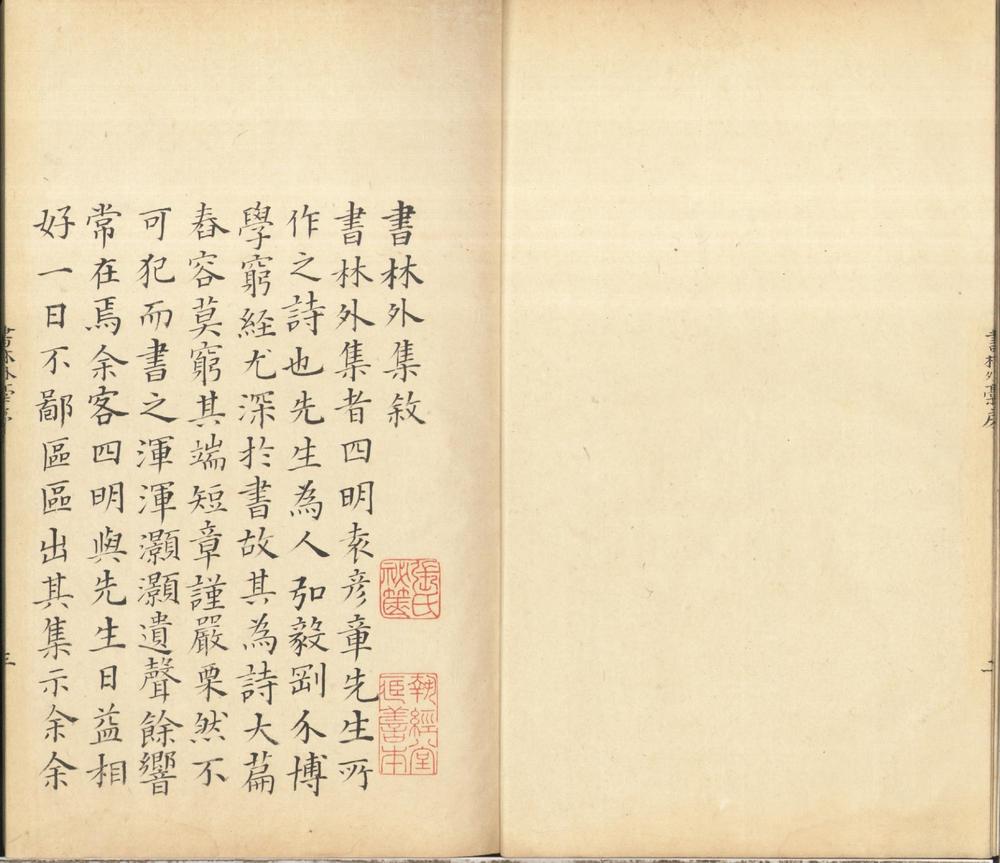 書林外集敘
書林外集者四明袁彦章先生所
作之詩也先生為人弘毅剛介博
學窮經尤深於書故其為詩大篇
舂容莫窮其端短章謹嚴栗然不
可犯而書之渾渾灝灝遺聲餘響
常在焉余客四明與先生日益相
好一日不鄙區區出其集示余余
張氏
秘篋
執經堂
善本
二